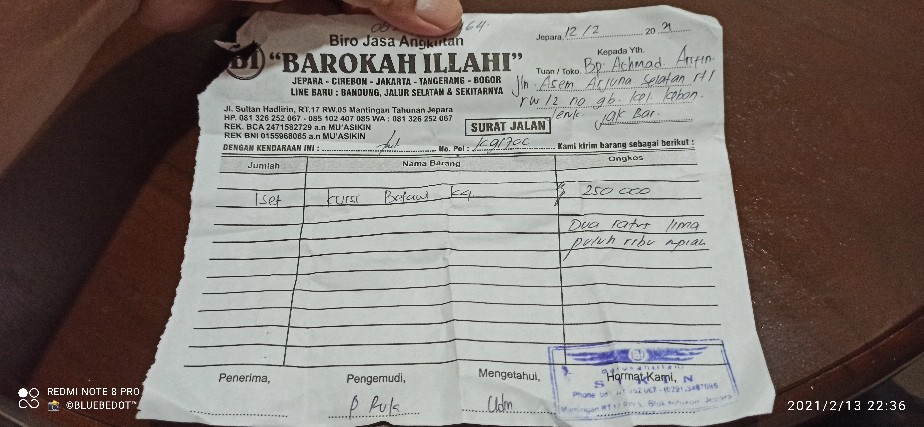 Biro Jasa Angkutan
"BAROKAH ILLAHI"
JEPARA - CIREBON - JAKARTA - TANGERANG - BOGOR
LINE BARU : BANDUNG, JALUR SELATAN & SEKITARNYA
Jl. Sultan Hadlirin, RT.17 RW.05 Mantingan Tahunan Jepara
HP. 081 326 252 067 - 085 102 407 085 WA : 081 326 252 067
REK. BCA 2471582729 a.n MU'ASIKIN
REK BNI 0155968065 a.n MU'ASIKIN
Jepara, 12/2 20 21
Kepada Yth.
Tuan / Toko. Bp Achmad Arifin
Jln Asem Arjuna Selatan rt 1
rw 12 no gb. kel. kebon
Jeruk Jak Bar.
SURAT JALAN
DENGAN KENDARAAN INI : No. Pol : Kami kirim barang sebagai berikut :
Jumlah Nama Barang Ongkos
1 set kursi 250 000
Dua ratus lima
puluh ribu rupiah
Penerima, Pengemudi, Mengetahui, Hormat Kami,
Udin
REDMI NOTE 8 PRO
©BLUEBEDOT™
2021/2/13 22:36